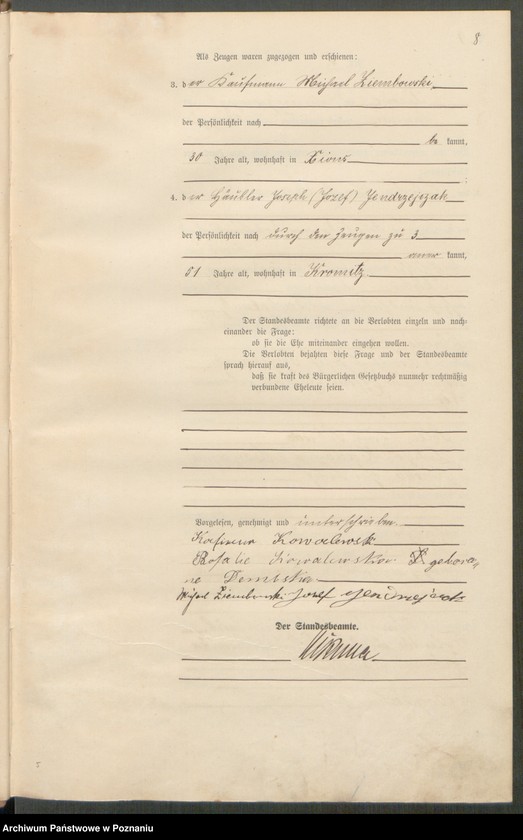 8
Als Zeugen waren zugezogen und erschienen:
3. der Kaufmann Michael Ziembowski
der Persönlichkeit nach
be kannt,
30 Jahre alt, wohnhaft in Xions
4. der Häusler Joseph (Jozef) Jendrzejczak
der Persönlichkeit nach durch den Zeugen zu 3
aner kannt,
61 Jahre alt, wohnhaft in
Der Standesbeamte richtete an die Verlobten einzeln und nach-
einander die Frage:
ob sie die Ehe miteinander eingehen wollen.
Die Verlobten bejahten diese Frage und der Standesbeamte
sprach hierauf aus,
daß sie kraft des Bürgerlichen Gesetzbuchs nunmehr rechtmäßig
verbundene Eheleute seien.
Vorgelesen, genehmigt und unterschrieben
Kowalewski
Rosalie Kowalewska gebore-
ne Dembska
Michael Ziembowski Jozef Jendrzejczak
Der Standesbeamte.
Archiwum Państwowe w Poznaniu